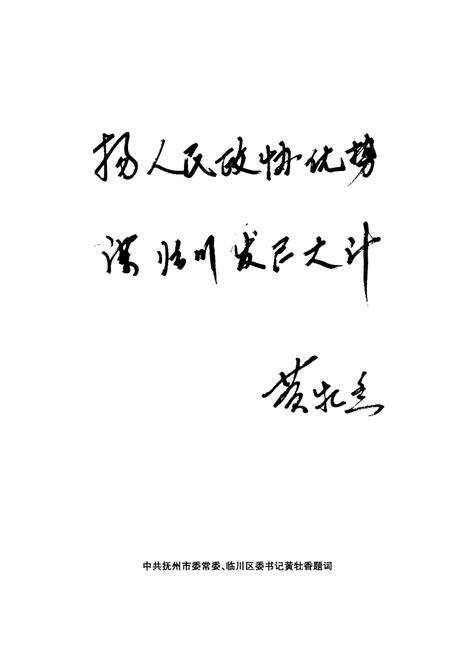 扬人民政协优势
谋临川发展大计
黄牡香
中共抚州市委常委、临川区委书记黄牡香题词